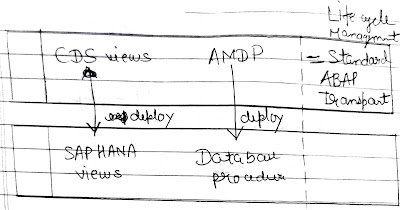 Life cycle
Managment
CDS views AMDP = Standard
ABAP
Transport
deploy deploy
SAPHANA Database
views procedure